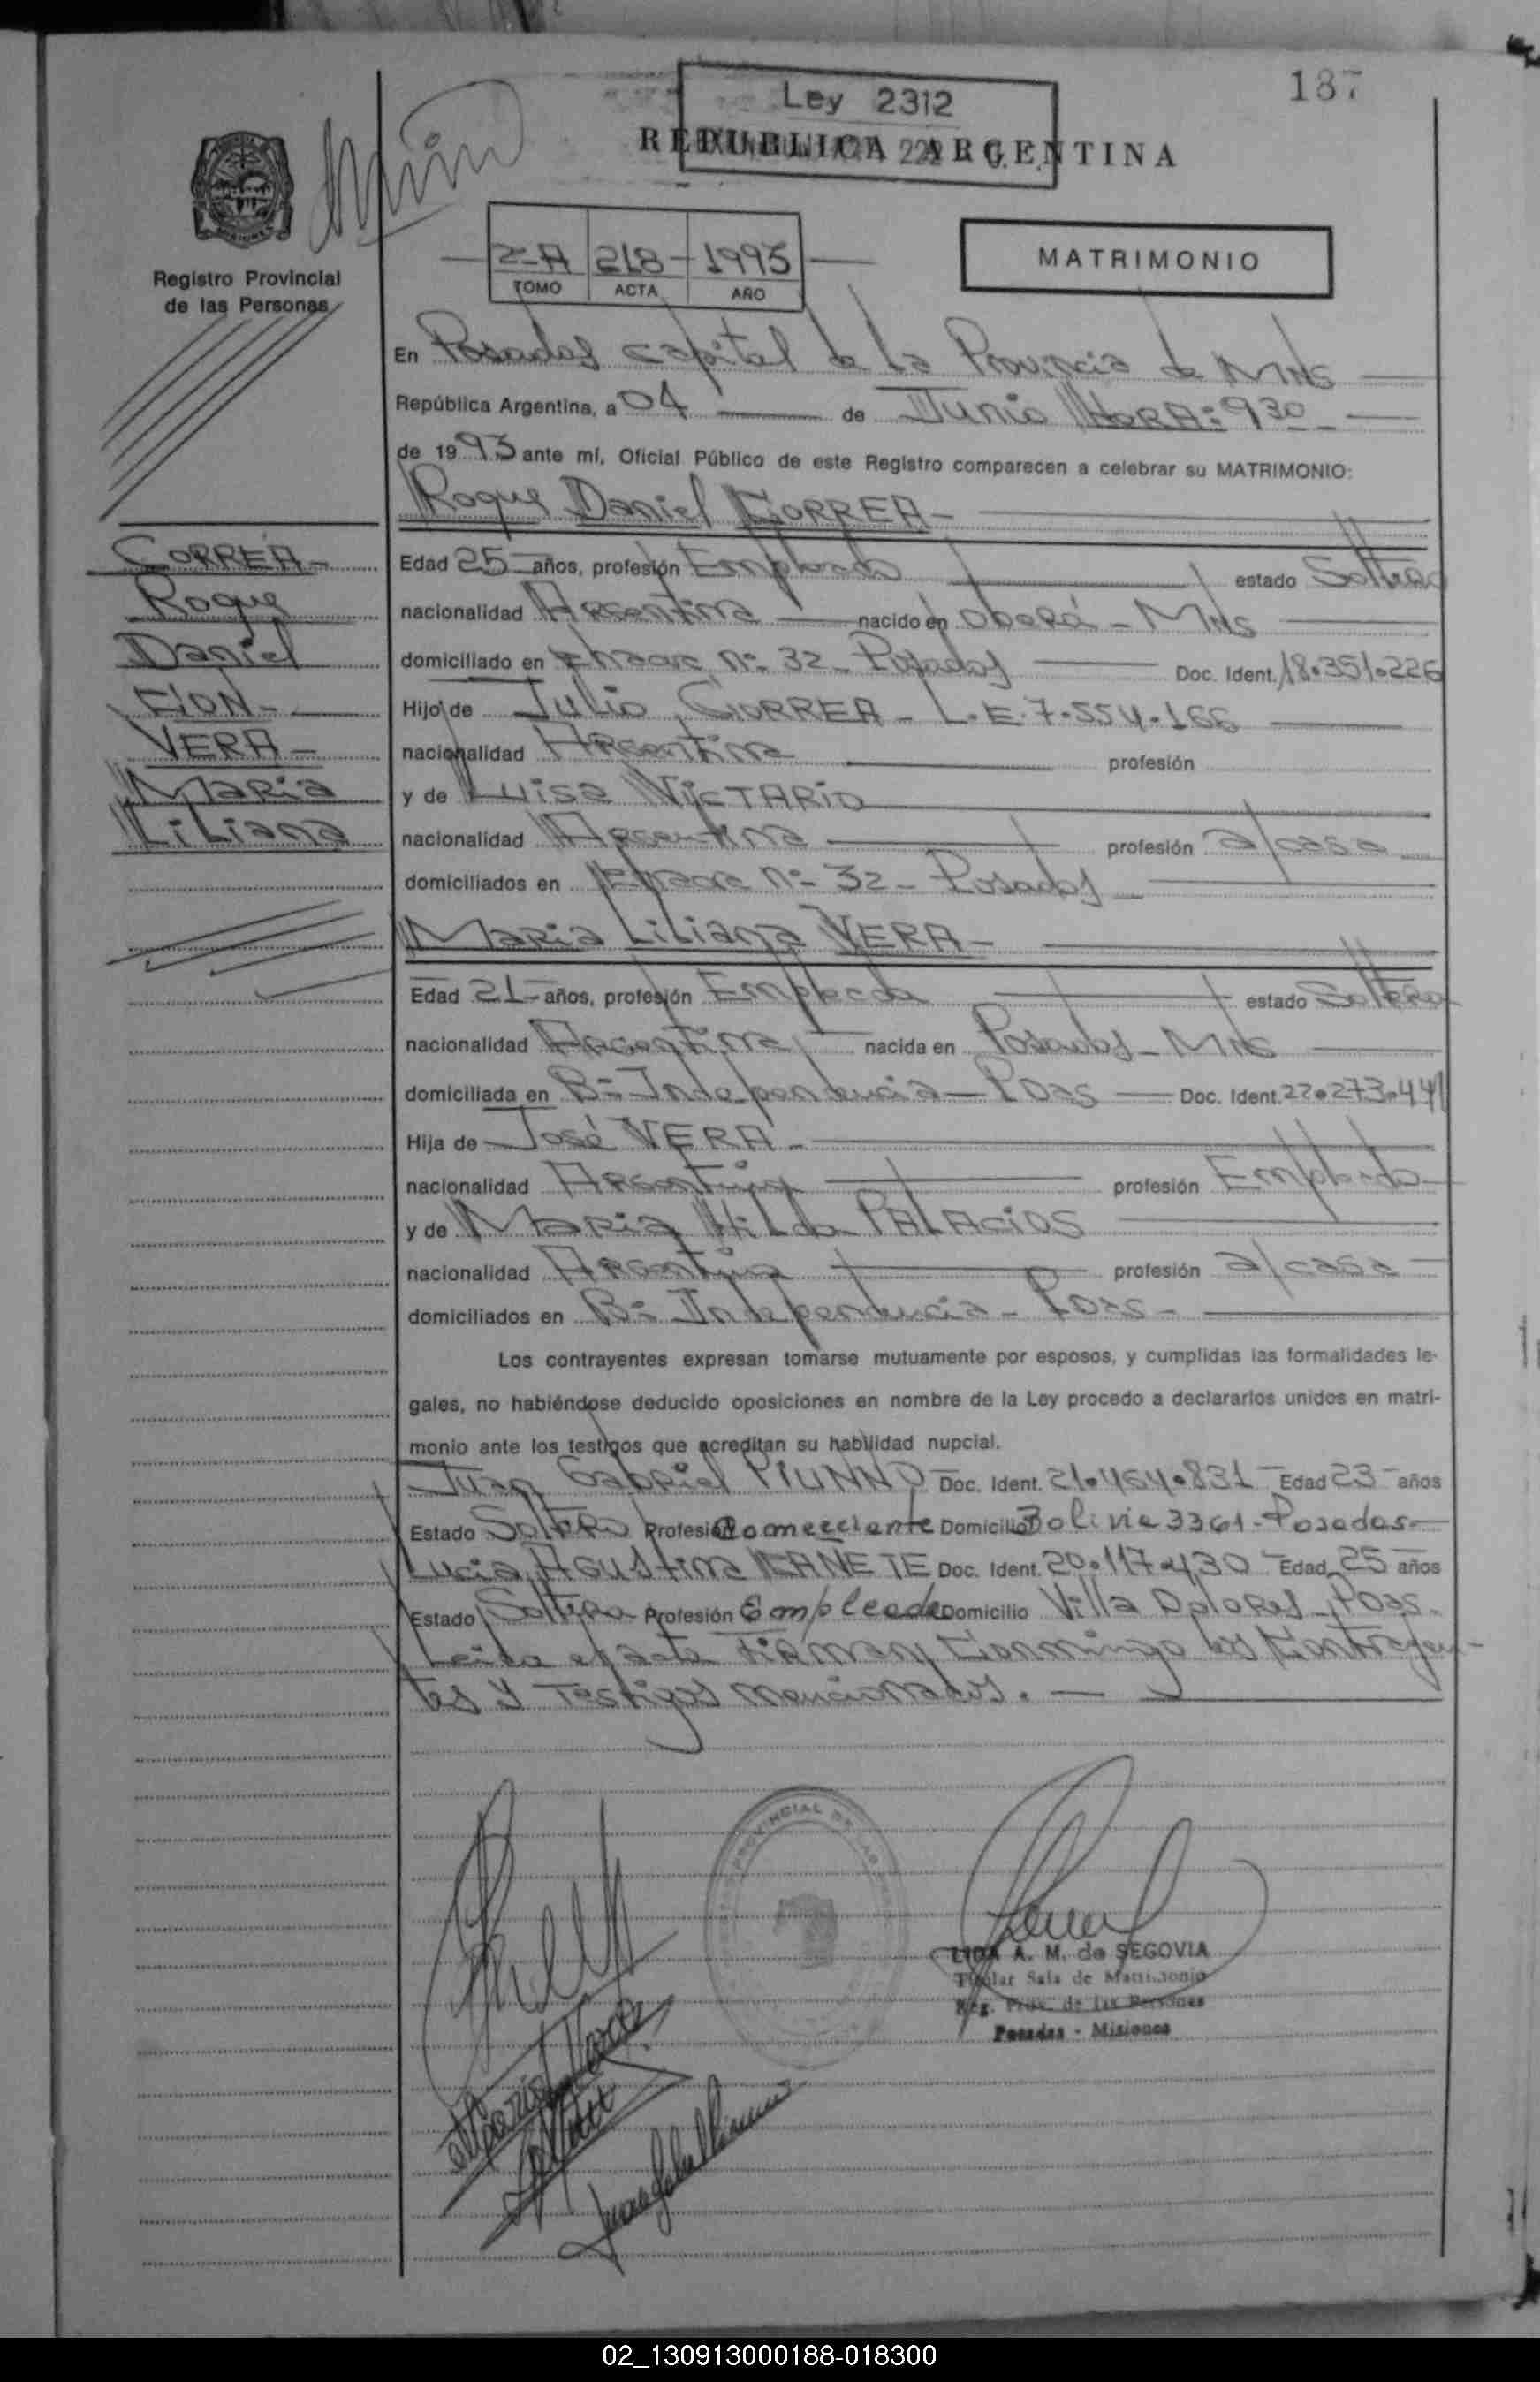 187
Ley 2312
REPUBLICA ARGENTINA
Registro Provincial
de las Personas
2-A 218 - 1993
TOMO ACTA AÑO
MATRIMONIO
En Posadas capital de la Provincia de Mnes
República Argentina, a 04 de Junio HORA: 930
de 1993 ante mí, Oficial Público de este Registro comparecen a celebrar su MATRIMONIO:
Roque Daniel CORREA -
CORREA -
Roque
Daniel
CON -
VERA -
Maria
Liliana
Edad 25 años, profesión Empleado estado Soltero
nacionalidad Argentina nacido en Oberá - Mnes
domiciliado en Chacra Nº 32 - Posadas Doc. Ident. 18.351.226
Hijo de Julio CORREA - L.E. 7.554.166
nacionalidad Argentina profesión
y de Luisa
nacionalidad Argentina profesión a/casa
domiciliados en Chacra Nº 32 - Posadas
Maria Liliana VERA -
Edad 21 años, profesión Empleada estado Soltera
nacionalidad Argentina nacida en Posadas - Mnes
domiciliada en Bº Independencia - Pdas Doc. Ident. 22.273.441
Hija de José VERA -
nacionalidad Argentina profesión Empleado
y de Maria Hilda PALACIOS
nacionalidad Argentina profesión a/casa
domiciliados en Bº Independencia - Pdas -
Los contrayentes expresan tomarse mutuamente por esposos, y cumplidas las formalidades le-
gales, no habiéndose deducido oposiciones en nombre de la Ley procedo a declararlos unidos en matri-
monio ante los testigos que acreditan su habilidad nupcial.
Juan Gabriel PIUNNO Doc. Ident. 21.464.831 Edad 23 años
Estado Soltero Profesión Comerciante Domicilio Bolivia 3361 - Posadas -
Lucia Agustina CAÑETE Doc. Ident. 20.117.430 Edad 25 años
Estado Soltera Profesión Empleada Domicilio Villa Dolores - Pdas.
Leida el acta Firman Conmingo los Contrayen-
tes y Testigos mencionados. -
LIDA A. M. de SEGOVIA
Titular Sala de Matrimonio
Reg. Prov. de las Personas
Posadas - Misiones
02_130913000188-018300